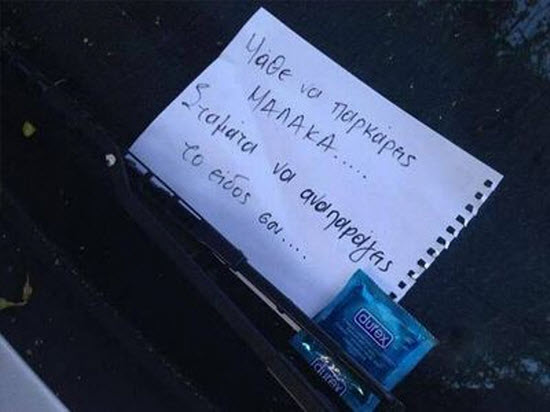 Μάθε να παρκάρεις
ΜΑΛΑΚΑ.....
Σταμάτα να αναπαράγεις
το είδος σου....
durex
durex